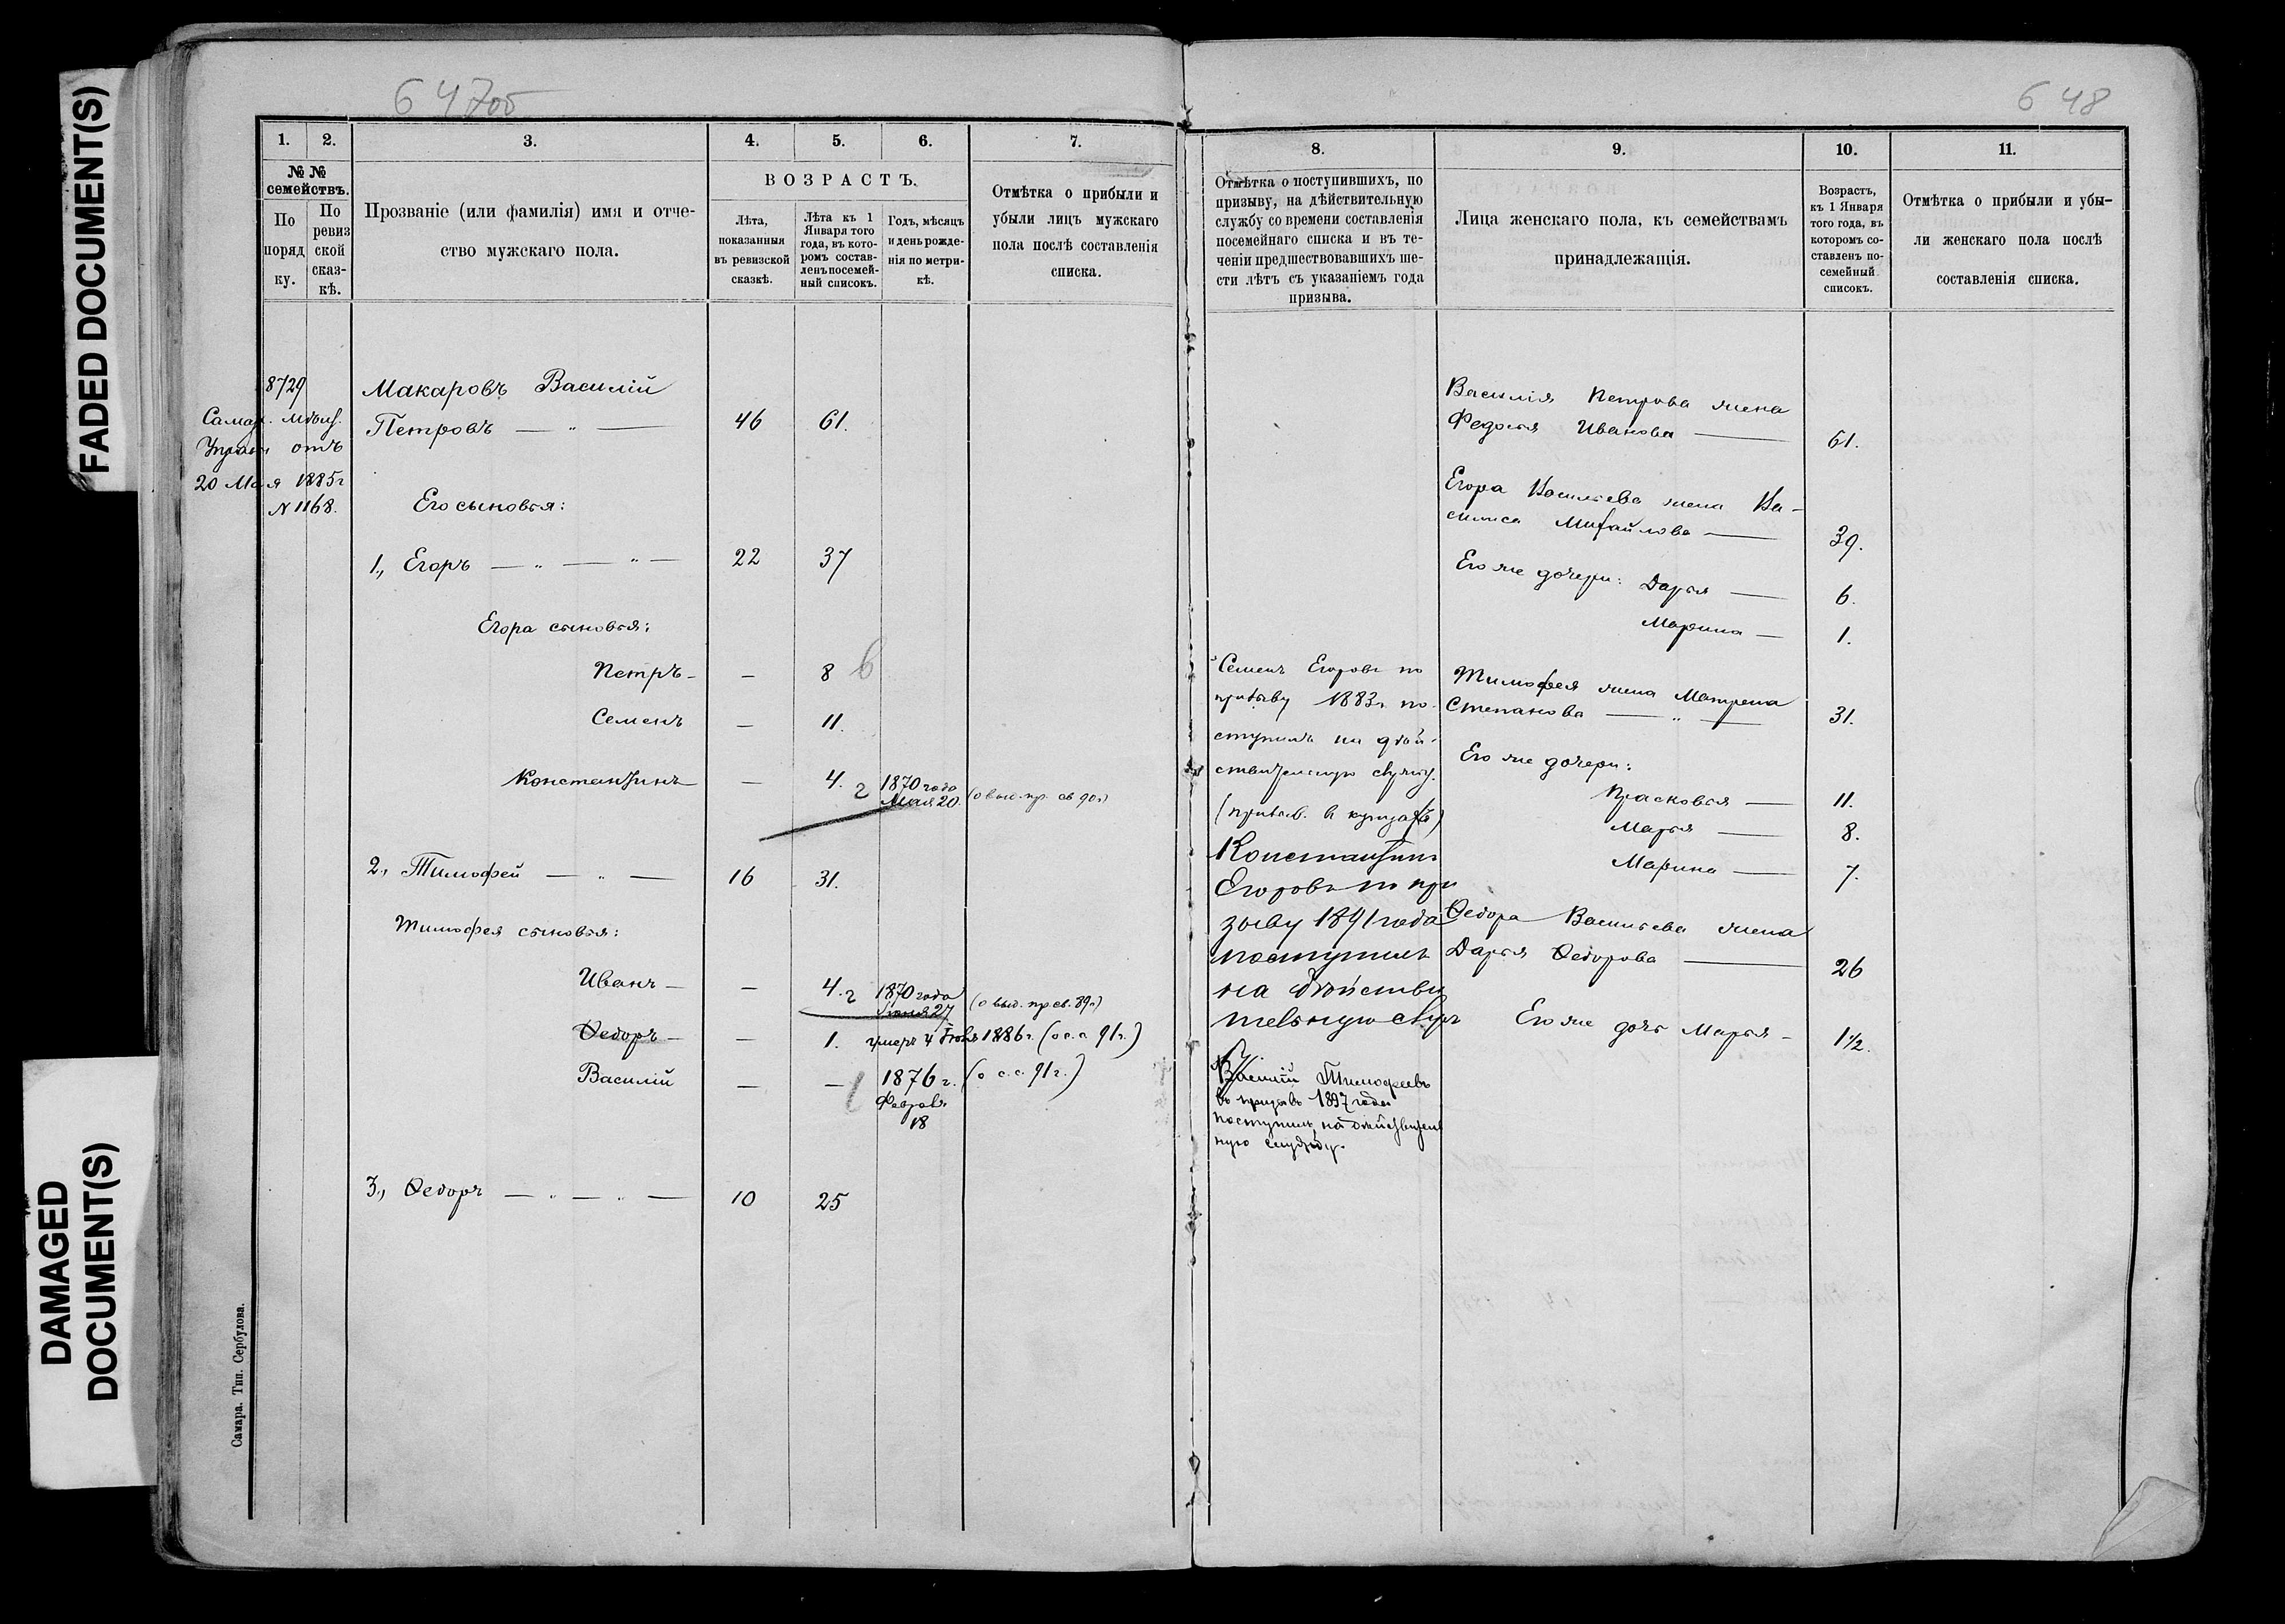 FADED DOCUMENT(S)
DAMAGED
DOCUMENT(S)
647об
1. 2. 3. 4. 5. 6. 7.
№ № семействъ.
По порядку.
По ревизской сказкѣ.
Прозваніе (или фамилія) имя и отче-
ство мужскаго пола.
ВОЗРАСТЪ.
Лѣта,
показанныя
въ ревизской
сказкѣ.
Лѣта къ 1
Января того
года, въ кото-
ромъ состав-
ленъ посемей-
ный списокъ.
Годъ, мѣсяцъ
и день рожде-
нія по метри-
кѣ.
Отмѣтка о прибыли и
убыли лицъ мужскаго
пола послѣ составленія
списка.
8729
Макаровъ Василій
Петровъ — „ — 46 61.
отъ
20 Мая 1885г
N 1168.
Его сыновья:
1., Егоръ — „ — „ — 22 37
Егора сыновья:
Петръ - — 8
Семенъ — 11.
Константинъ — 4. 2 1870 года
Мая 20.
2., Тимофей — „ — 16 31.
Тимофея сыновья:
Иванъ — — 4. 2 1870 года
27
Ѳедоръ — — 1. умеръ 4 Іюня 1886г. (о с.с. 91г.)
Василій — — 1876 г. (о с.с. 91г.)
Феврал.
18
3., Ѳедоръ — „ — „ — 10 25
Самара. Тип. Сербулова.
648
8. 9. 10. 11.
Отмѣтка о поступившихъ, по
призыву, на дѣйствительную
службу со времени составленія
посемейнаго списка и въ те-
ченіи предшествовавшихъ ше-
сти лѣтъ съ указаніемъ года
призыва.
Лица женскаго пола, къ семействамъ
принадлежащія.
Возрастъ,
къ 1 Января
того года, въ
которомъ со-
ставленъ по-
семейный
списокъ.
Отмѣтка о прибыли и убы-
ли женскаго пола послѣ
составленія списка.
Семенъ Егоровъ по
призыву 1883г. по-
ступилъ на дѣй-
ствительную служб.
Константинъ
Егоровъ по при
зыву 1891 года
поступилъ
на дѣйстви
тельную служ
Василій Тимофеевъ
въ призывъ 1897 года
поступилъ на дѣйствитель
ную службу.
Василія Петрова жена
Федосья Иванова — 61.
Егора Васильева жена Ва-
силиса Михайлова — 39.
Его же дочери: Дарья — 6.
Марина — 1.
Тимофея жена Матрена
Степанова — „ — 31.
Его же дочери:
Прасковья — 11.
Марья — 8.
Марина — 7.
Ѳедора Васильева жена
Дарья Ѳедорова — 26
Его же дочь Марья - 1½.